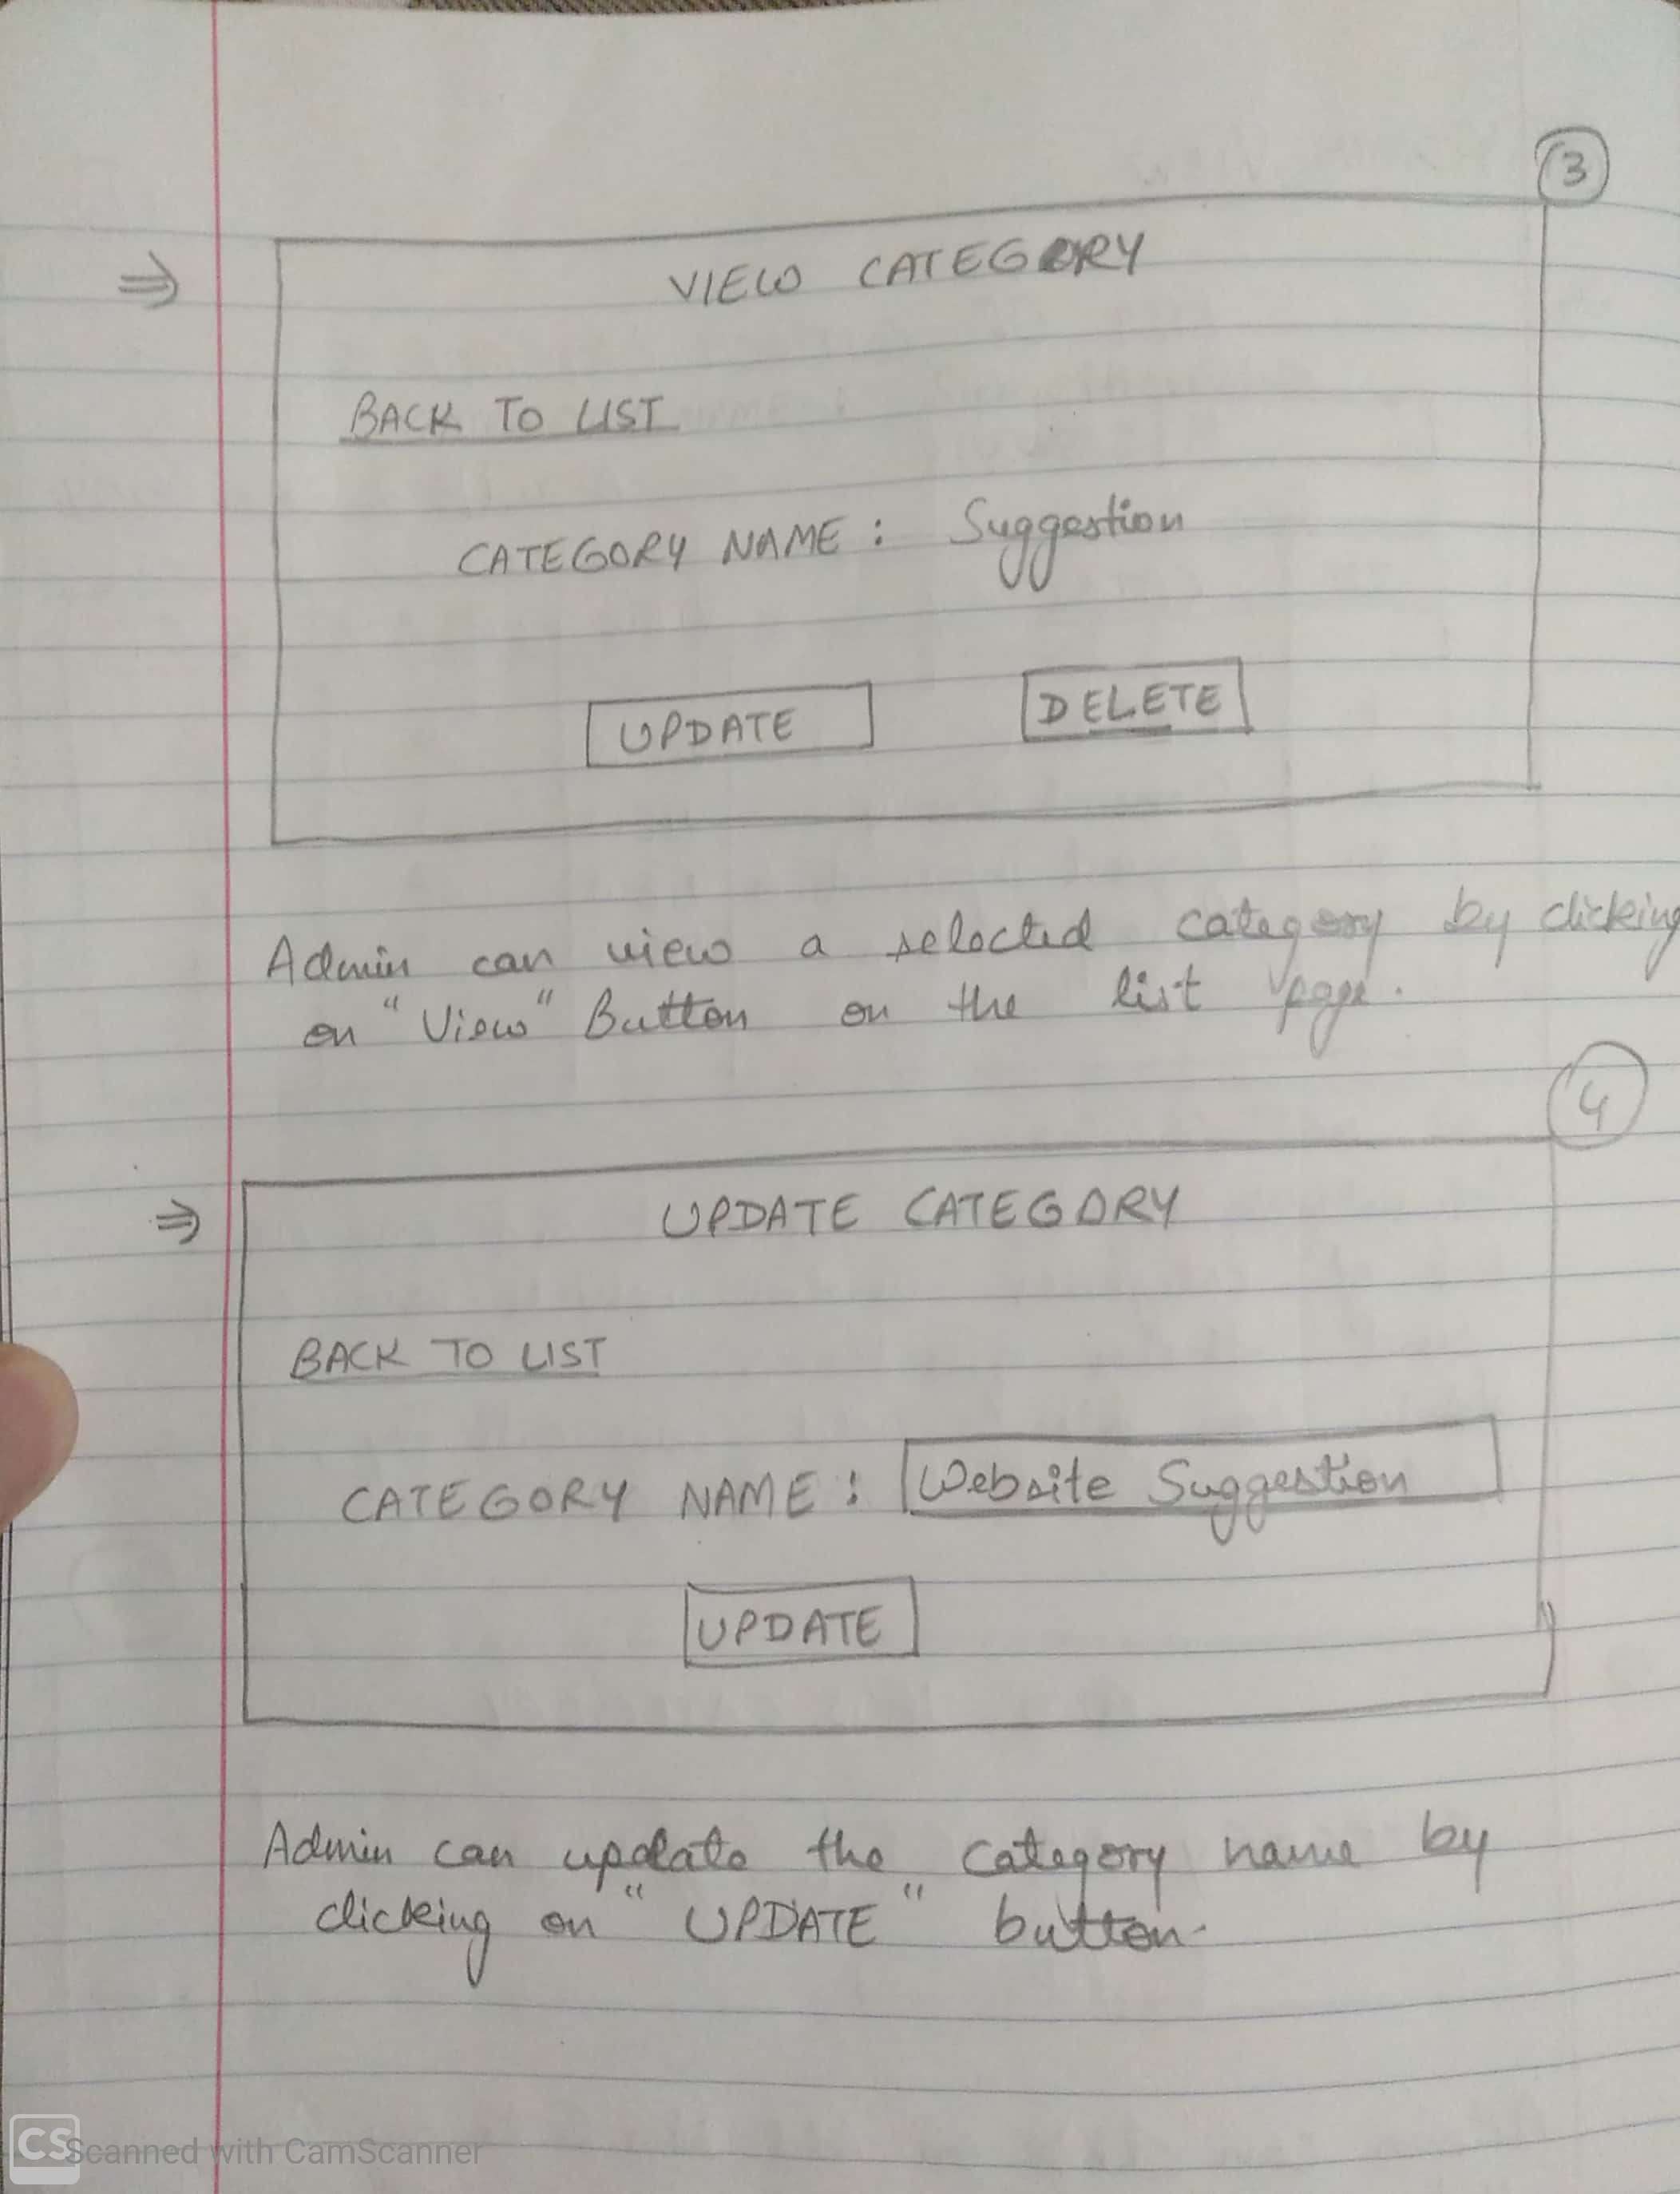 3
⇒ VIEW CATEGORY
BACK TO LIST
CATEGORY NAME : Suggestion
UPDATE DELETE
Admin can view a selected category by clicking
on "View" Button on the list page.
4
⇒ UPDATE CATEGORY
BACK TO LIST
CATEGORY NAME : Website Suggestion
UPDATE
Admin can update the category name by
clicking on "UPDATE" button.
CS Scanned with CamScanner